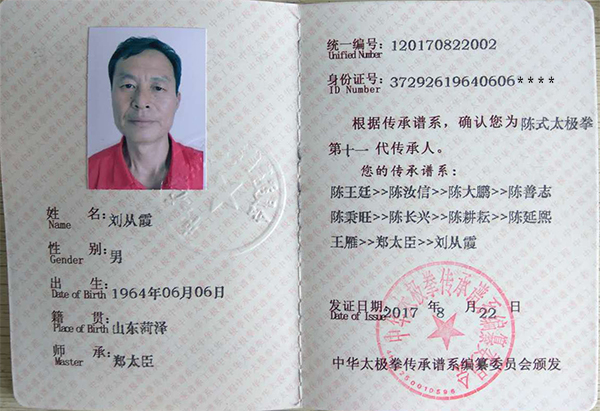 姓 名:刘从霞
Name
性 别:男
Gender
出 生:1964年06月06日
Date of Birth
籍 贯:山东菏泽
Place of Birth
师 承:郑太臣
Master
统一编号:120170822002
Unified Number
身份证号:37292619640606****
ID Number
根据传承谱系,确认您为陈式太极拳
第十一代传承人。
您的传承谱系:
陈王廷>>陈汝信>>陈大鹏>>陈善志
陈秉旺>>陈长兴>>陈耕耘>>陈延熙
王雁>>郑太臣>>刘从霞
发证日期:2017 年 8 月 22 日
Date of Issue
中华太极拳传承谱系编纂委员会
中华太极拳传承谱系编纂委员会颁发